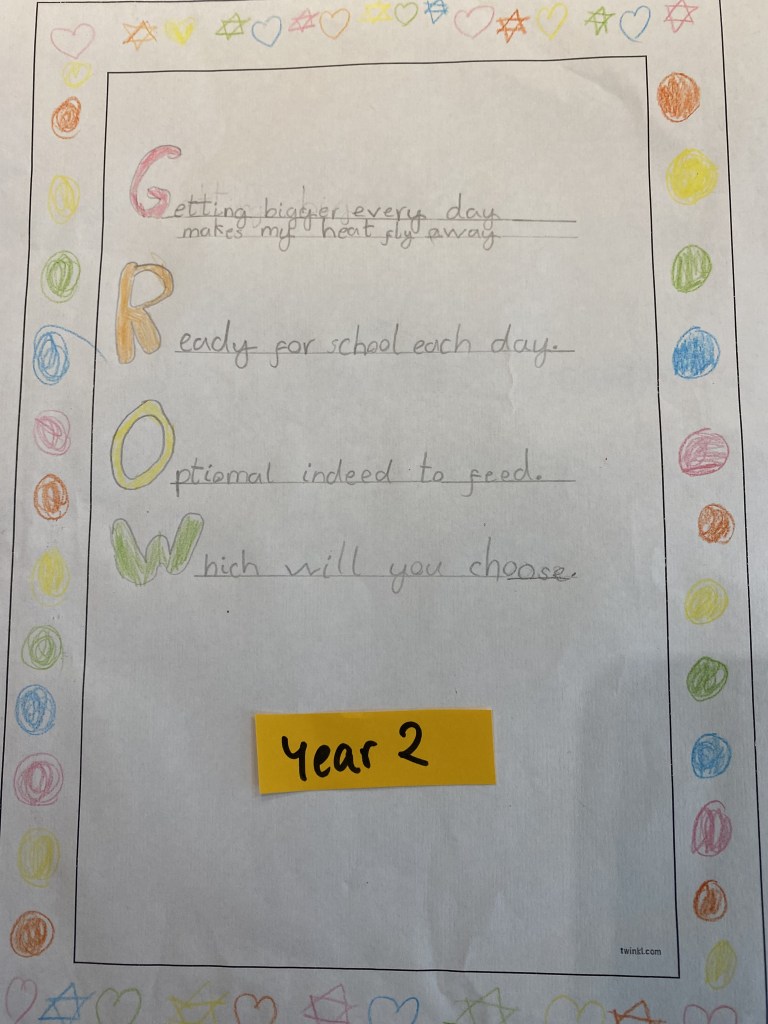 Getting bigger every day
makes my heat fly away
Ready for school each day.
Optiomal indeed to feed.
Which will you choose.
Year 2
twinkl.com